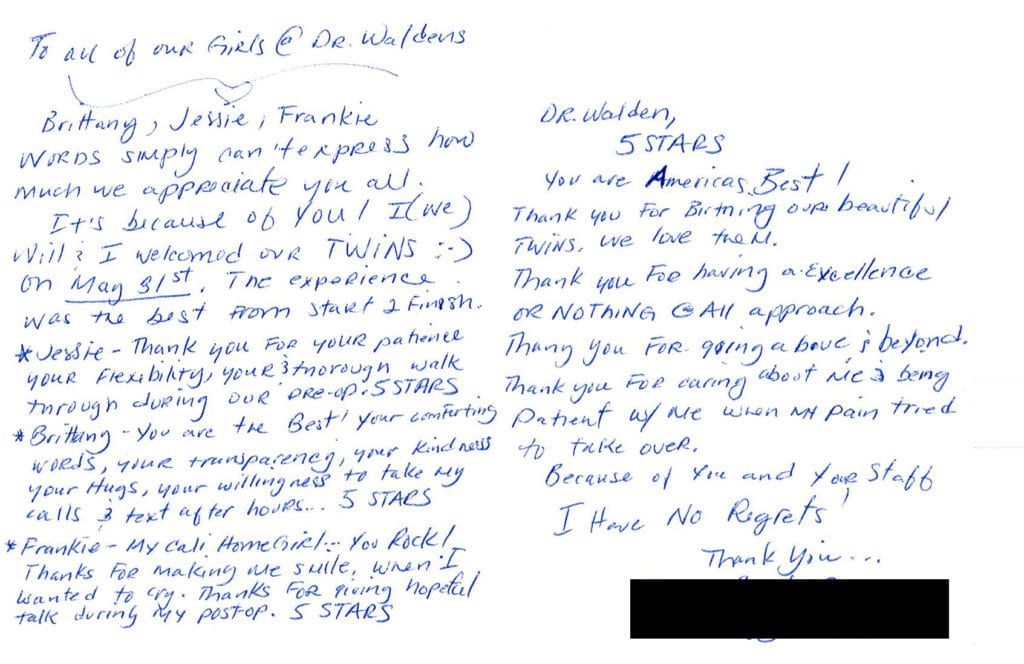 To all of our Girls @ Dr. Waldens
Brittany, Jessie, Frankie
WORDS simply can't express how
much we appreciate you all.
It's because of You! I(we)
Will & I welcomed our TWINS :-)
on May 31st. The experience
was the best from start 2 Finish.
*Jessie - Thank you FOR your patience
your Flexibility, your & thorough walk
through during our pre-op. 5 STARS
*Brittany - You are the Best! Your comforting
words, your transparency, your kindness
your Hugs, your willingness to take my
calls & text after hours... 5 STARS
*Frankie - My Cali HomeGirl... You Rock!
Thanks For making me smile, when I
wanted to cry. Thanks FOR giving hopeful
talk during my postop. 5 STARS
DR. Walden,
5 STARS
You are Americas Best!
Thank you For Birthing our beautiful
TWINS. We love them.
Thank you For having a Excellence
OR NOTHING @ All approach.
Thany you FOR going above & beyond.
Thank you For caring about me & being
Patient w/ me when my pain tried
to take over.
Because of You and Your Staff
I Have No Regrets!
Thank You...